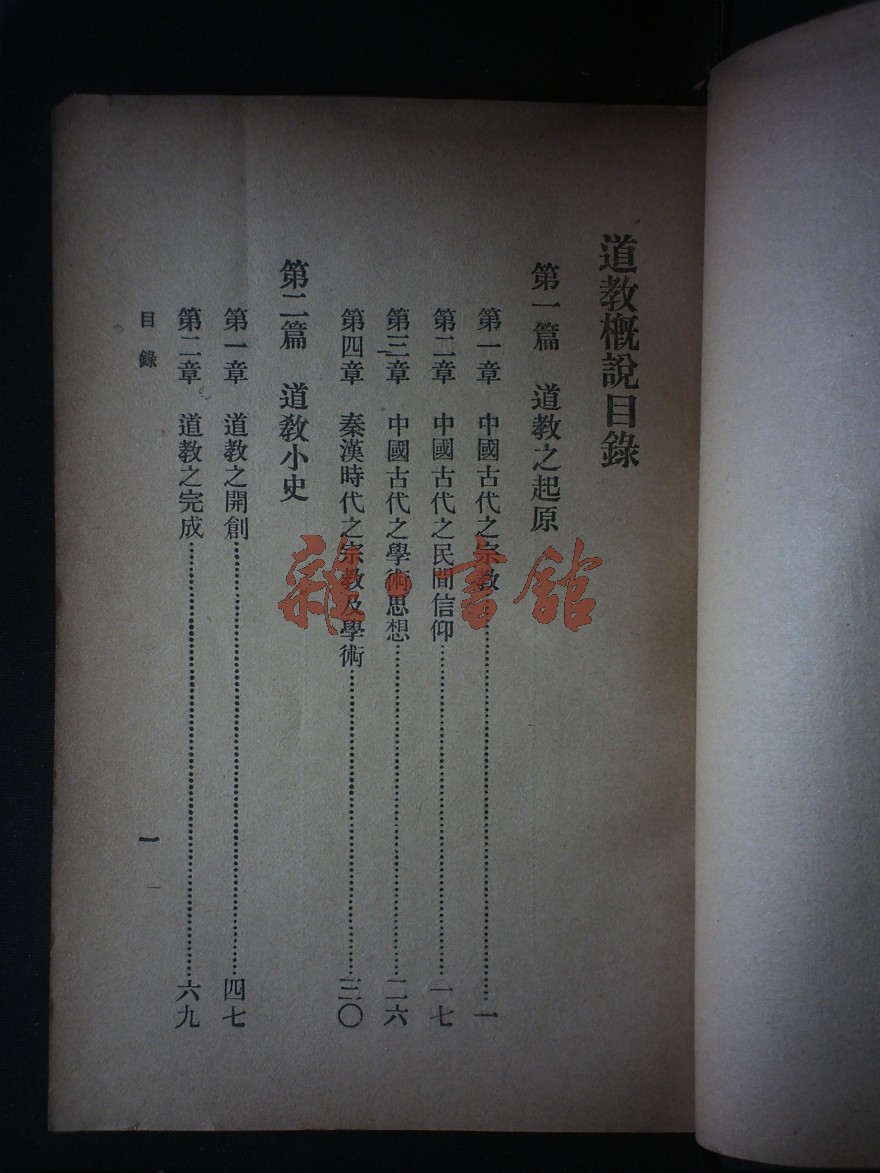 道教概說目錄
第一篇　道教之起原
第一章　中國古代之宗教…………一
第二章　中國古代之民間信仰…………一七
第三章　中國古代之學術思想…………二六
第四章　秦漢時代之宗教及學術…………三〇
第二篇　道教小史
第一章　道教之開創…………四七
第二章　道教之完成…………六九
目錄
一
雜·書館